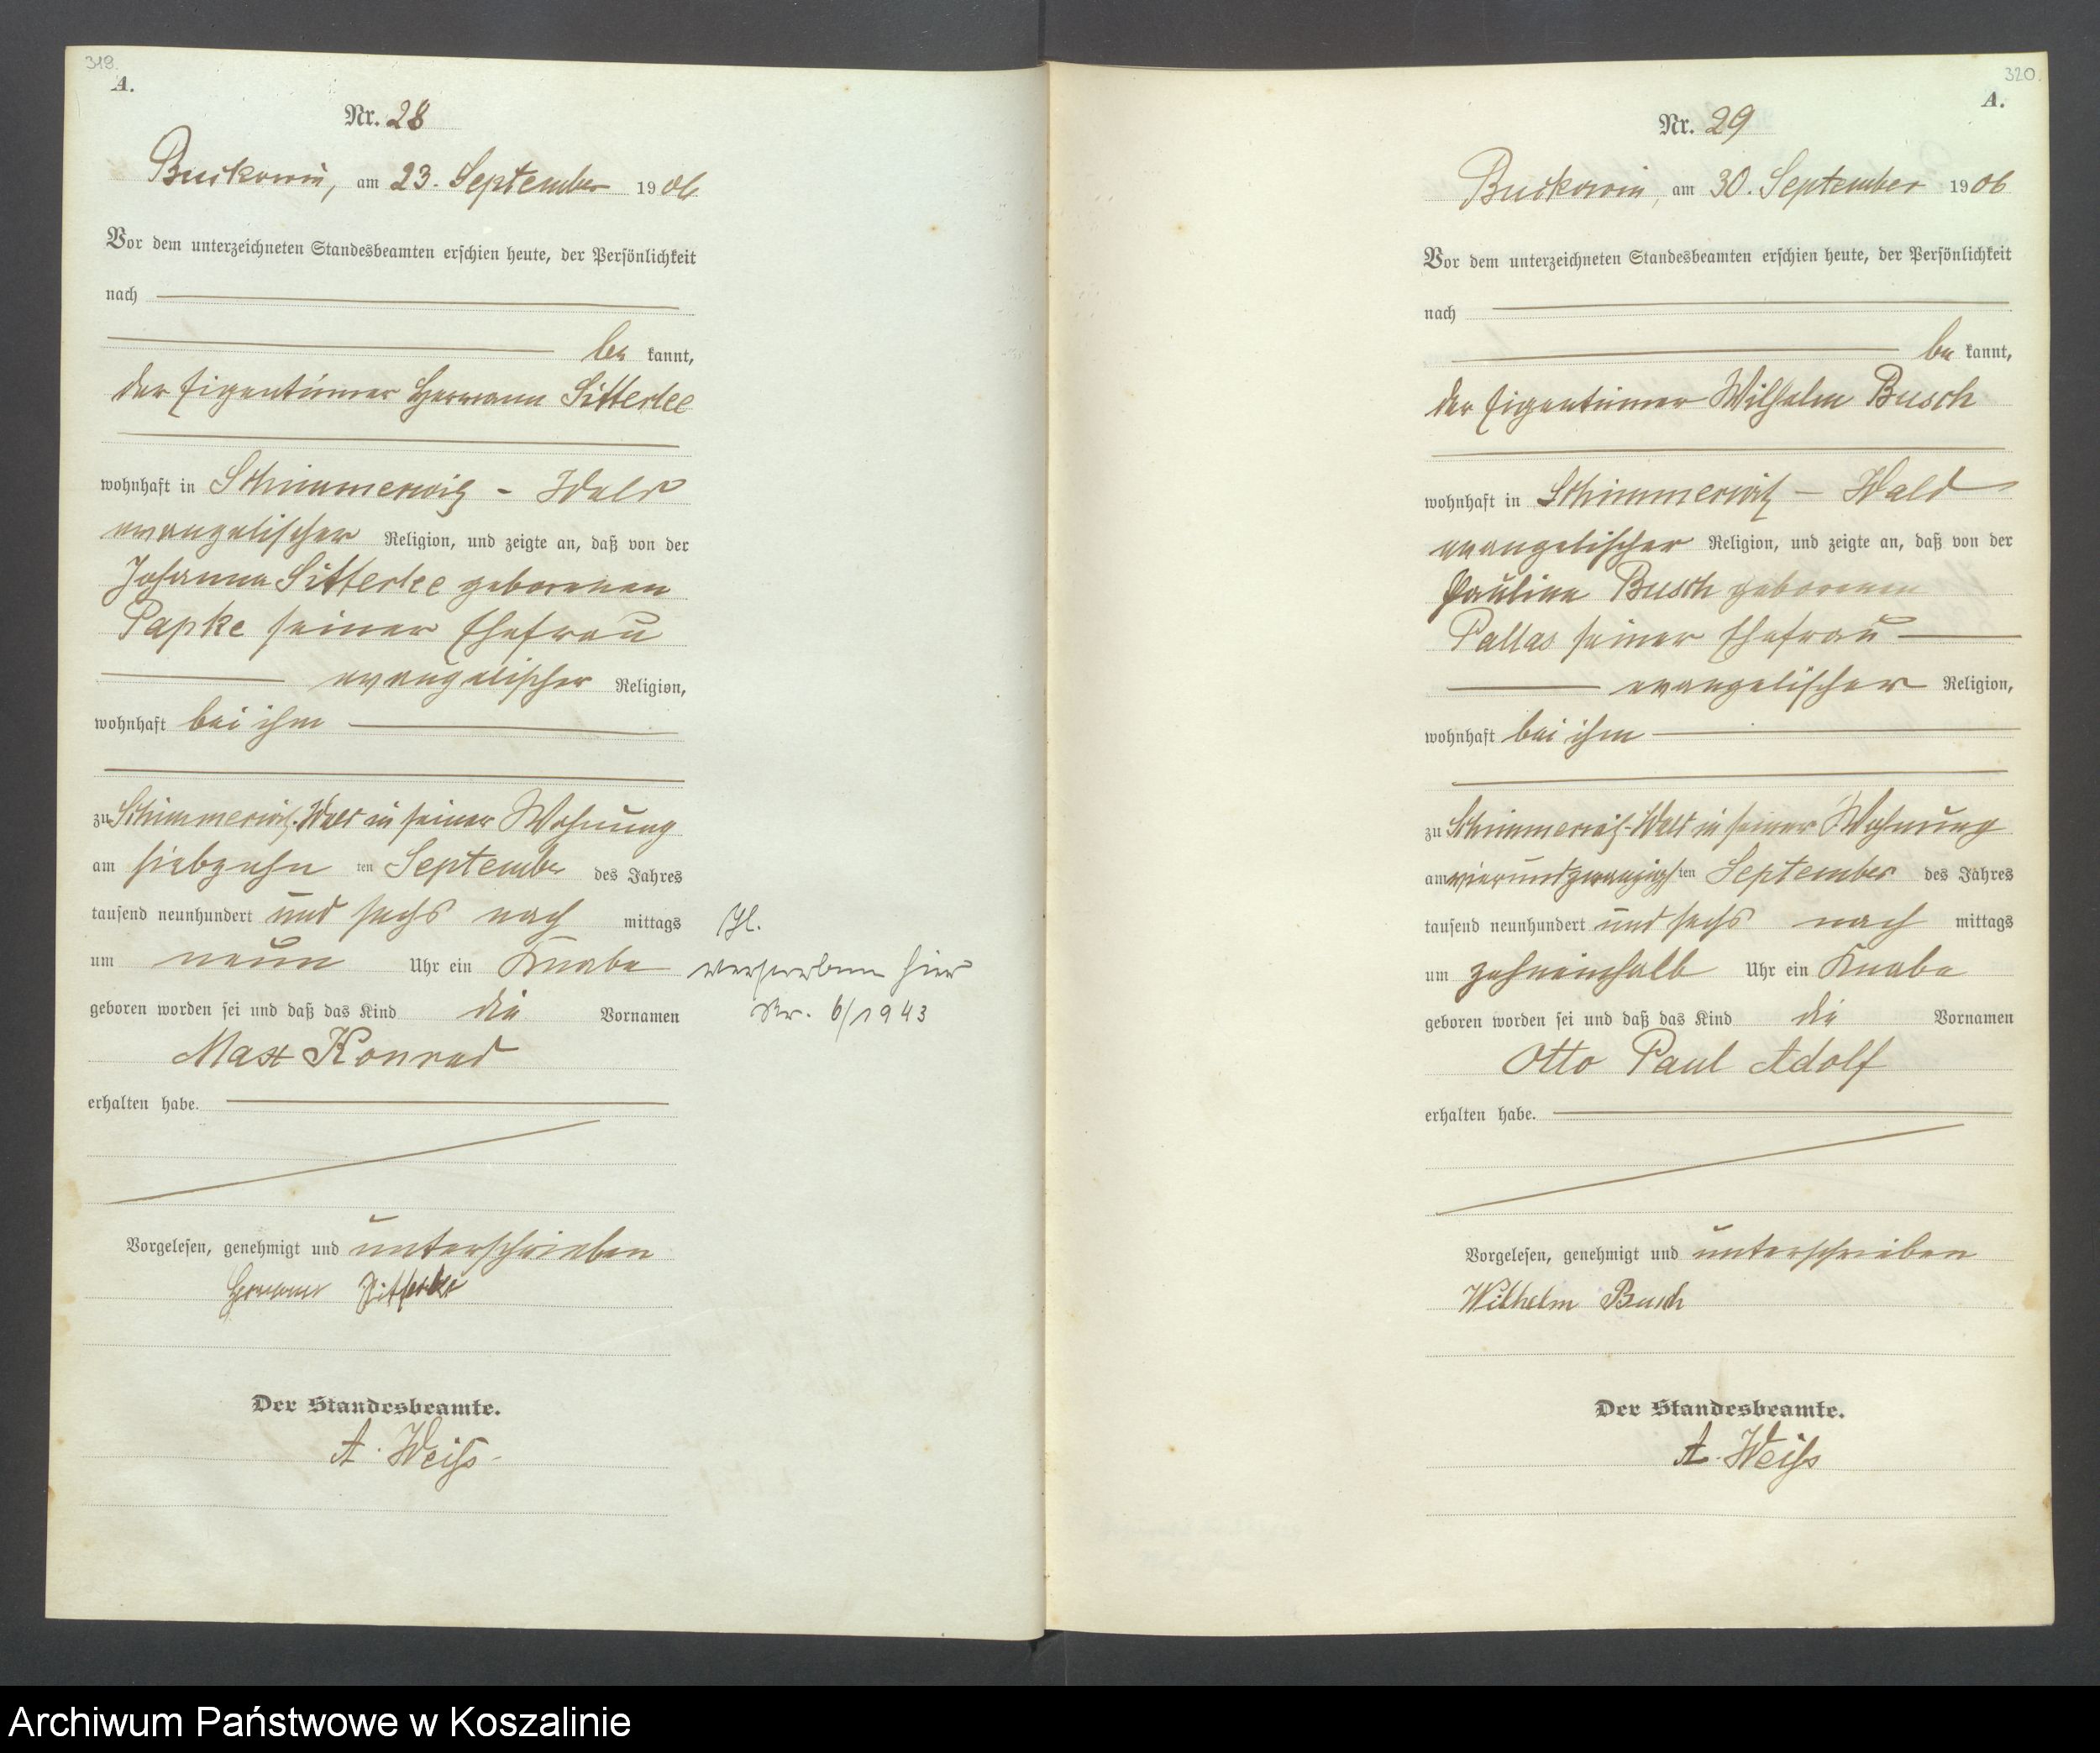 319.
A.
Nr. 28
Buckowin, am 23. September 1906
Vor dem unterzeichneten Standesbeamten erschien heute, der Persönlichkeit
nach
be kannt,
der Eigentümer Hermann Sitterlee
wohnhaft in Schimmerwitz - Wald
evangelischer Religion, und zeigte an, daß von der
Johanna Sitterlee geborenen
Papke seiner Ehefrau
evangelischer Religion,
wohnhaft bei ihm
zu Schimmerwitz-Wald in seiner Wohnung
am siebzehn ten September des Jahres
tausend neunhundert und sechs nach mittags
um neun Uhr ein Knabe
geboren worden sei und daß das Kind die Vornamen
Max Konrad
erhalten habe.
Vorgelesen, genehmigt und unterschrieben
Hermann
Der Standesbeamte.
A. Weiß
verstorben hier
Nr. 6/1943
320.
A.
Nr. 29
Buckowin, am 30. September 1906
Vor dem unterzeichneten Standesbeamten erschien heute, der Persönlichkeit
nach
be kannt,
der Eigentümer Wilhelm Busch
wohnhaft in Schimmerwitz - Wald
evangelischer Religion, und zeigte an, daß von der
Pauline Busch geborenen
Pallas seiner Ehefrau
evangelischer Religion,
wohnhaft bei ihm
zu Schimmerwitz-Wald in seiner Wohnung
am vierundzwanzigsten September des Jahres
tausend neunhundert und sechs nach mittags
um zehneinhalb Uhr ein Knabe
geboren worden sei und daß das Kind die Vornamen
Otto Paul Adolf
erhalten habe.
Vorgelesen, genehmigt und unterschrieben
Wilhelm Busch
Der Standesbeamte.
A. Weiß
Archiwum Państwowe w Koszalinie